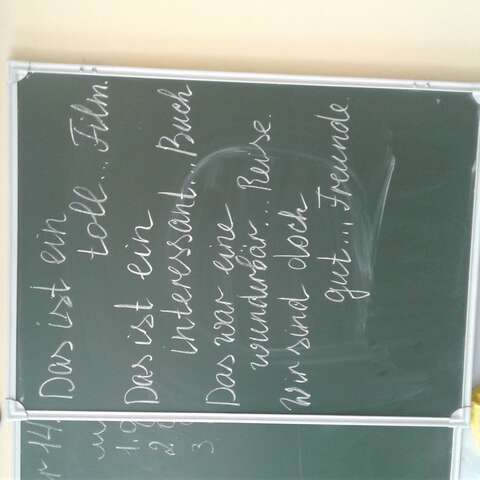 Das ist ein
toll... Film.
Das ist ein
interessant... Buch
Das war eine
wunderbär... Reise.
Wir sind doch
gut... Freunde.
14.
1.
2.
3